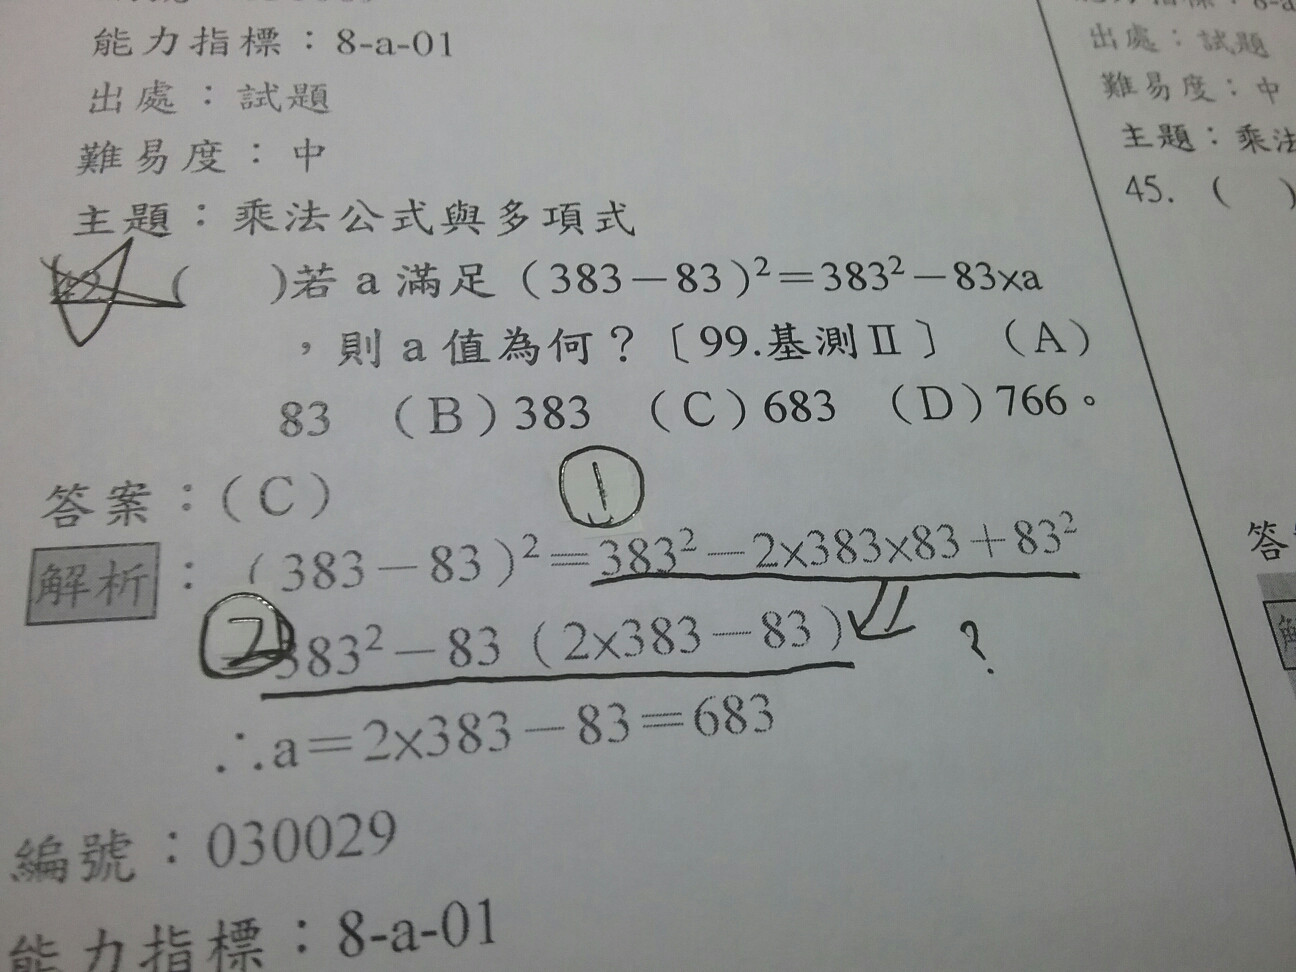 能力指標：8-a-01
出處：試題
難易度：中
主題：乘法公式與多項式
(　　)若 a 滿足（383－83）²＝383²－83xa
，則 a 值為何？〔99.基測Ⅱ〕　（A）
83　（B）383　（C）683　（D）766。
答案：（C）
1
解析：（383－83）²＝383²－2x383x83＋83²
2
＝383²－83（2x383－83）
?
∴a＝2x383－83＝683
編號：030029
能力指標：8-a-01
出處：試題
難易度：中
主題：乘法
45.（　　）
答